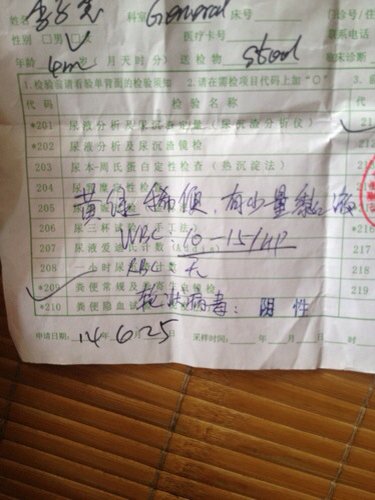 姓名 科室General 床号 门诊号/住
性别 男 女 医疗卡号 联系电话
年龄 4m(岁月天时分) 送检物 Stool 临床诊断
1.检验前请看验单背面的检验须知 2.请在需检项目代码上加“○” 3.
代码 检验名称 代
*201 尿液分析及尿沉渣定量(尿沉渣分析仪)
*202 尿液分析及尿沉渣镜检 21
203 尿本-周氏蛋白定性检查(热沉淀法) 213
204
黄绿稀便,有少量粘液
205
206 尿三杯试验
WBC 10-15/HP
207 尿液爱迪氏计数 217
208 一小时尿 计数 218
RBC 无
*209 粪便常规及 镜检 219
轮状病毒:阴性
*210 粪便隐血试
申请日期: 14 6 25 采样时间: 年 月 日 时